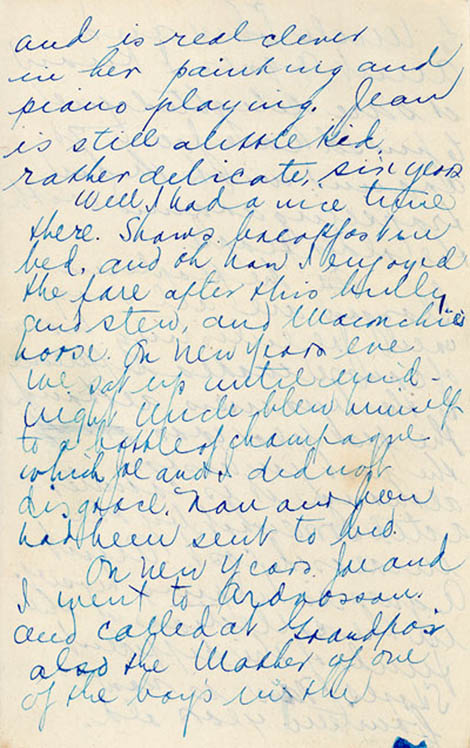 and is real clever
in her painting and
piano playing. Jean
is still a little kid,
rather delicate, six years
Well, I had a nice time
there. Shaws breakfast in
bed, and oh how I enjoyed
the fare after this bully
and stew, and
horse. On New Years eve
we sat up until mid-
night Uncle blew himself
to a bottle of champagne
which Joe and I did not
disgrace. Nan and Jean
had been sent to bed.
On New Years Joe and
I went to Ardrossan.
and called at Grandpa's
also the Mother of one
of the boys in the